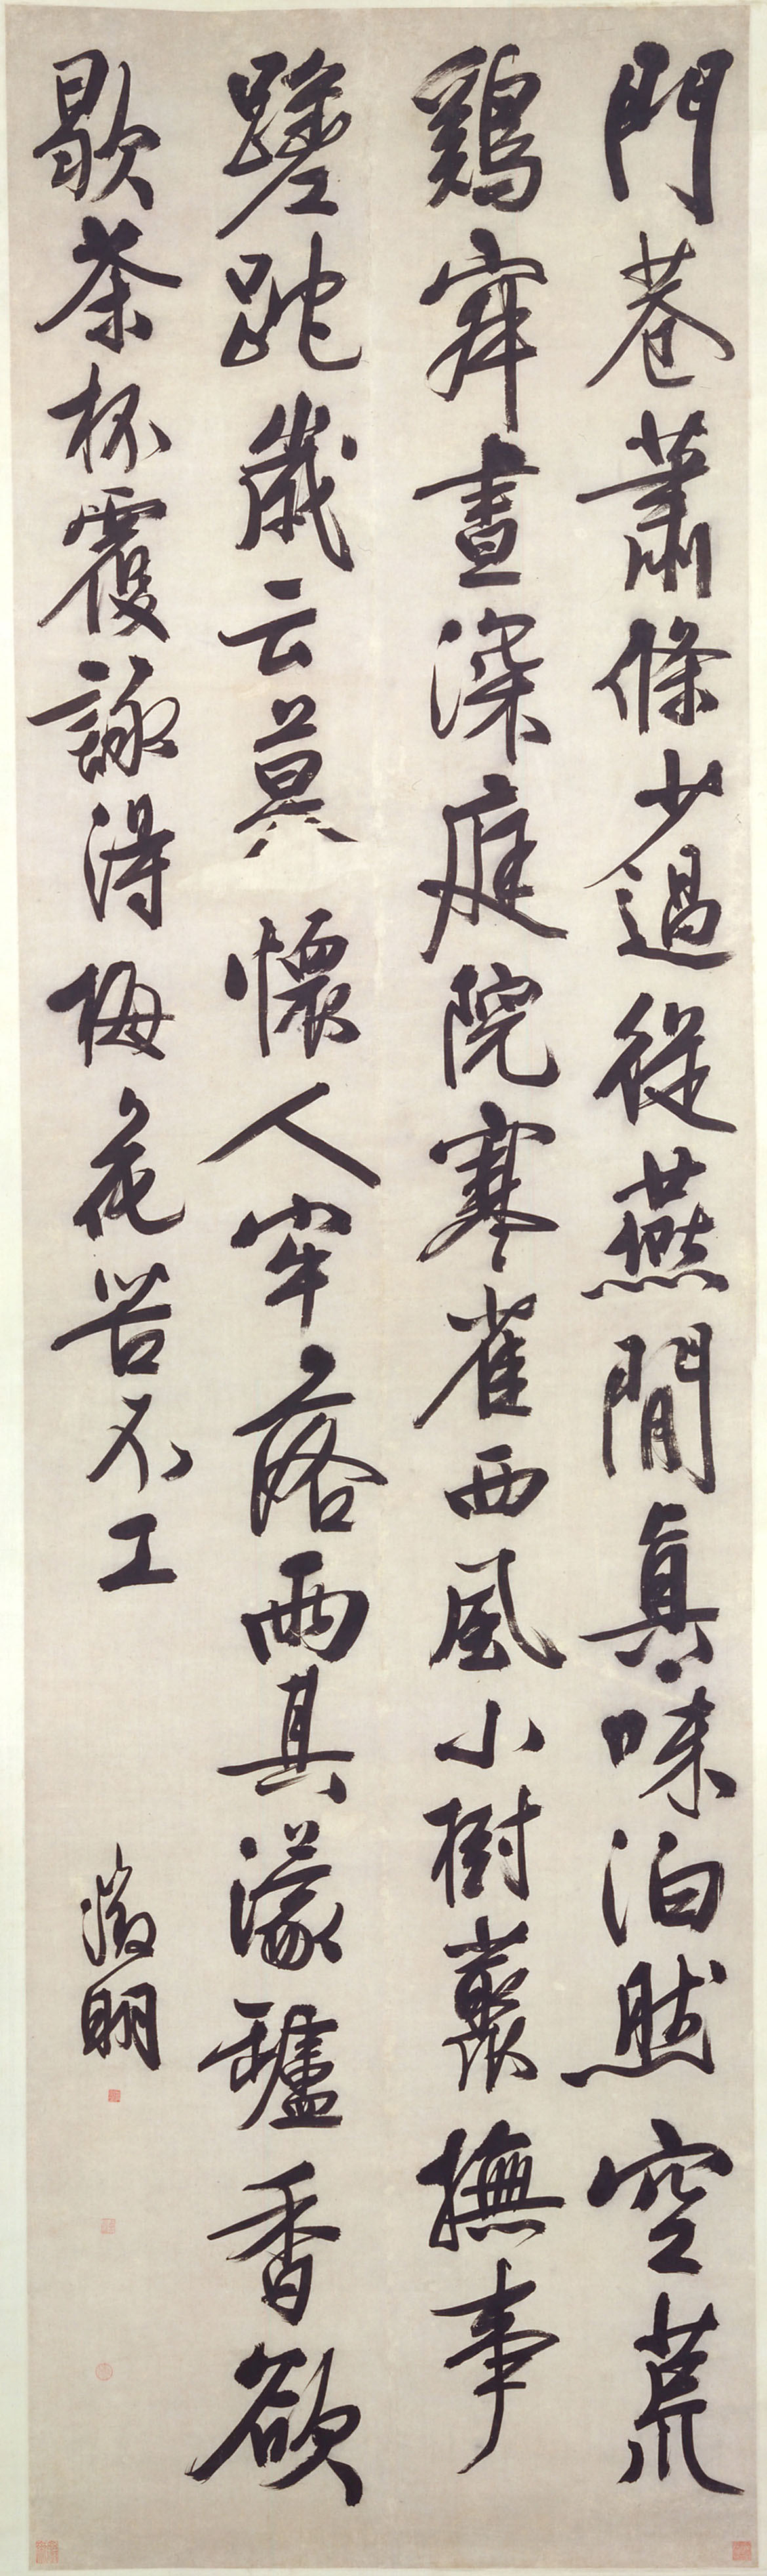 門巷蕭條少過從燕閒真味泊然空荒
鷄穽晝深庭院寒雀西風小樹叢撫事
蹉跎歲云莫懷人牢落雨其濛罏香欲
歇茶杯覆詠得梅花苦不工
徵明